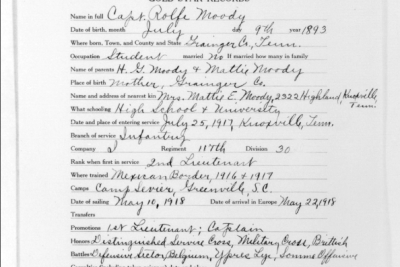 GOLD STAR RECORDS
Name in full Capt. Rolfe Moody
Date of birth, month July day 9th year 1893
Where born, Town, and County and State Grainger Co., Tenn.
Occupation Student married No If married how many in family
Name of parents H. G. Moody & Mattie Moody
Place of birth Mother, Grainger Co.
Name and address of nearest kin Mrs. Mattie E. Moody, 2322 Highland, Knoxville, Tenn.
What schooling High School & University
Date and place of entering service July 25, 1917, Knoxville, Tenn.
Branch of service Infantry
Company I Regiment 117th Division 30
Rank when first in service 2nd Lieutenant
Where trained Mexican Border, 1916 & 1917
Camps Camp Sevier, Greenville, S.C.
Date of sailing May 10, 1918 Date of arrival in Europe May 22, 1918
Transfers
Promotions 1st Lieutenant; Captain
Honors Distinguished Service Cross, Military Cross, Brittish
Battles Defensive Sector, Belgium, Ypres Lys, Somme Offensive